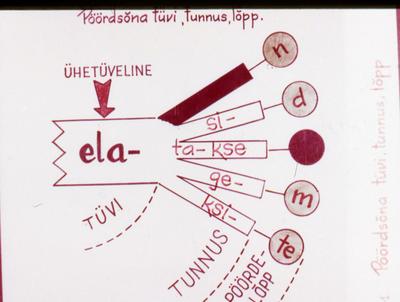 Pöördsõna tüvi, tunnus, lõpp.
ÜHETÜVELINE
n
si- d
ela- ta- kse
ge- m
ksi- te
TÜVI
TUNNUS
PÖÖRDE-
LÕPP
Pöördsõna tüvi, tunnus, lõpp